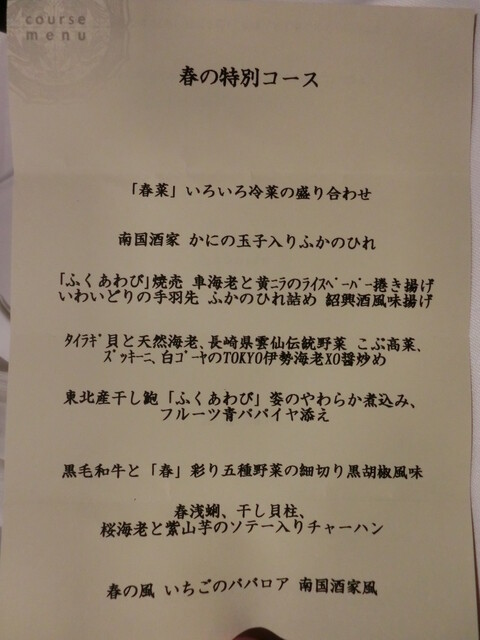 course
menu
春の特別コース
「春菜」いろいろ冷菜の盛り合わせ
南国酒家 かにの玉子入りふかのひれ
「ふくあわび」焼売 車海老と黄ニラのライスペーパー捲き揚げ
いわいどりの手羽先 ふかのひれ詰め 紹興酒風味揚げ
タイラギ貝と天然海老、長崎県雲仙伝統野菜 こぶ高菜、
ズッキーニ、白ゴーヤのTOKYO伊勢海老XO醤炒め
東北産干し鮑「ふくあわび」姿のやわらか煮込み、
フルーツ青パパイヤ添え
黒毛和牛と「春」彩り五種野菜の細切り黒胡椒風味
春浅蜊、干し貝柱、
桜海老と紫山芋のソテー入りチャーハン
春の風 いちごのババロア 南国酒家風